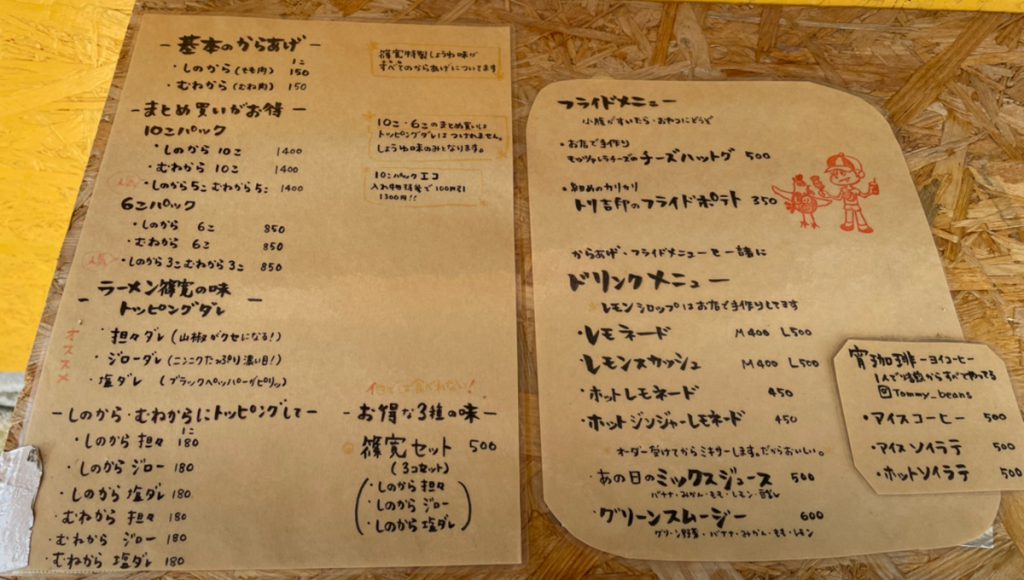 - 基本のからあげ -
1こ
・しのから(もも肉) 150
・むねから(むね肉) 150
篠寛特製しょうゆ味が
すべてのからあげについてます
- まとめ買いがお得
10こパック
・しのから 10こ 1400
・むねから 10こ 1400
人気 ・しのから5こ むねから5こ 1400
10こ・6このまとめ買いは
トッピングダレはつけれません。
しょうゆ味のみとなります。
10こパックエコ
入れ物持参で100円引
1300円!!
6こパック
・しのから 6こ 850
・むねから 6こ 850
人気 ・しのから3こ むねから3こ 850
- ラーメン篠寛の味 -
トッピングダレ
オススメ
・担々ダレ(山椒がクセになる!)
・ジローダレ(ニンニクたっぷり濃い目!)
・塩ダレ (ブラックペッパーがピリッ)
- しのから・むねからにトッピングして -
1こ
・しのから 担々 180
・しのから ジロー 180
・しのから 塩ダレ 180
・むねから 担々 180
・むねから ジロー 180
・むねから 塩ダレ 180
- お得な3種の味 -
篠寛セット 500
(3コセット)
・しのから 担々
・しのから ジロー
・しのから 塩ダレ
フライドメニュー
小腹がすいたら・おやつにどうぞ
・お店で手作り
モッツァレラチーズのチーズハットグ 500
・細めのカリカリ
トリ吉印のフライドポテト 350
からあげ・フライドメニューと一緒に
ドリンクメニュー
レモンシロップはお店で手作りしてます
・レモネード M400 L500
・レモンスカッシュ M400 L500
・ホットレモネード 450
・ホットジンジャーレモネード 450
オーダー受けてからミキサーします。だからおいしい。
・あの日のミックスジュース 500
バナナ・みかん・もも・レモン・豆乳
・グリーンスムージー 600
グリーン野菜・バナナ・みかん・もも・レモン
宵珈琲-ヨイコーヒー
1人で焙煎からすべてやってる
@Tommy_beans
・アイスコーヒー 500
・アイスソイラテ 500
・ホットソイラテ 500